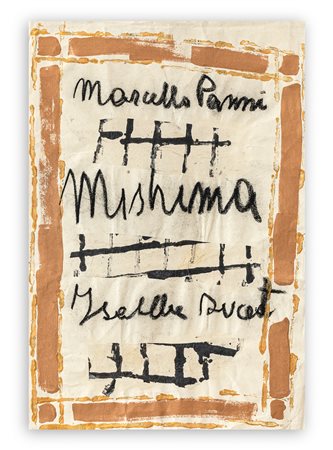 Marcello Panni
Mishima
Isabella Ducrot